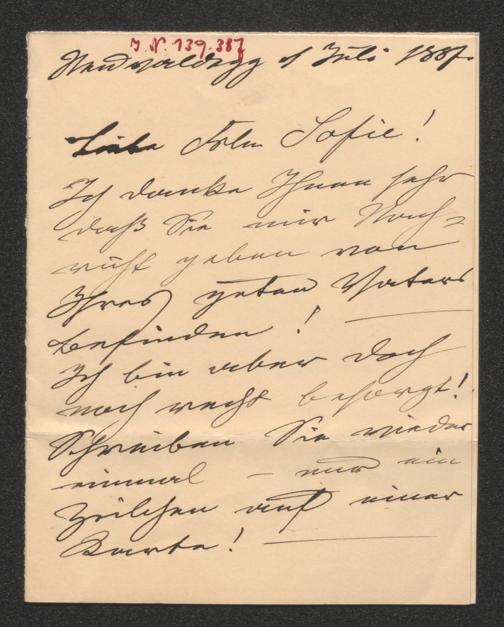 J. N. 139.387
Neuwaldegg 1 Juli 1887.
Liebe Frln Sofie!
Ich danke Ihnen sehr
daß Sie mir Nach-
richt geben von
Ihres guten Vaters
Befinden!
Ich bin aber doch
noch recht besorgt!
Schreiben Sie wieder
einmal – nur ein
Zeilchen auf einer
Karte!